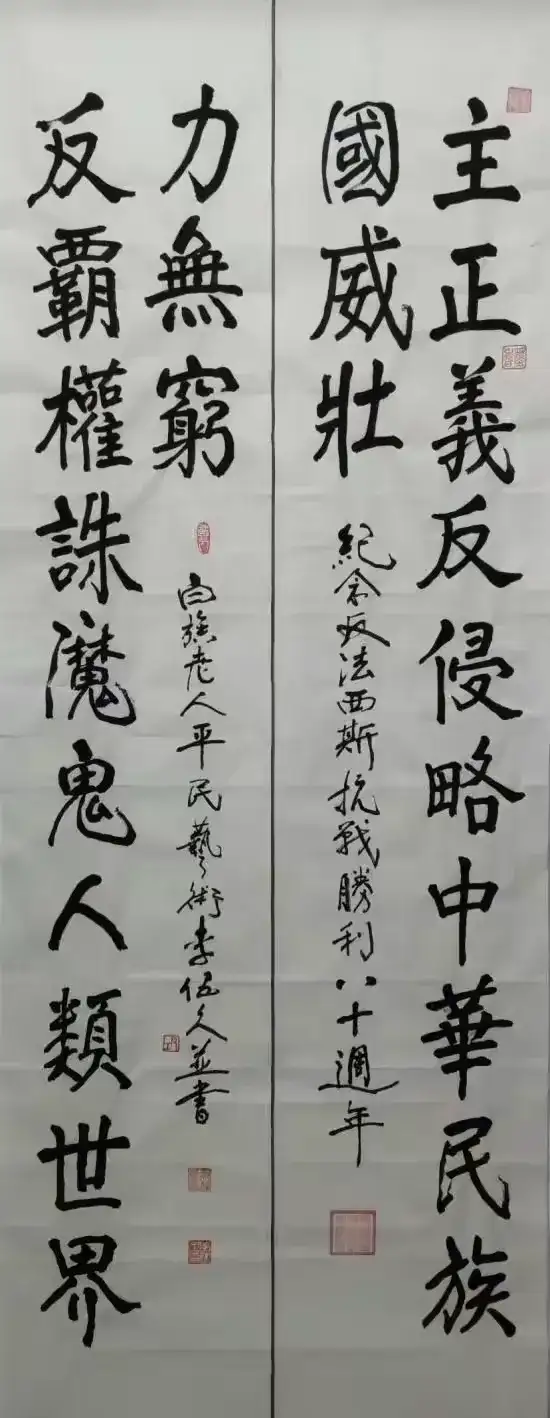 主正義反侵略中華民族
國威壯
紀念反法西斯抗戰勝利八十週年
反覇權誅魔鬼人類世界
力無窮
白族老人平民藝術李伍久並書